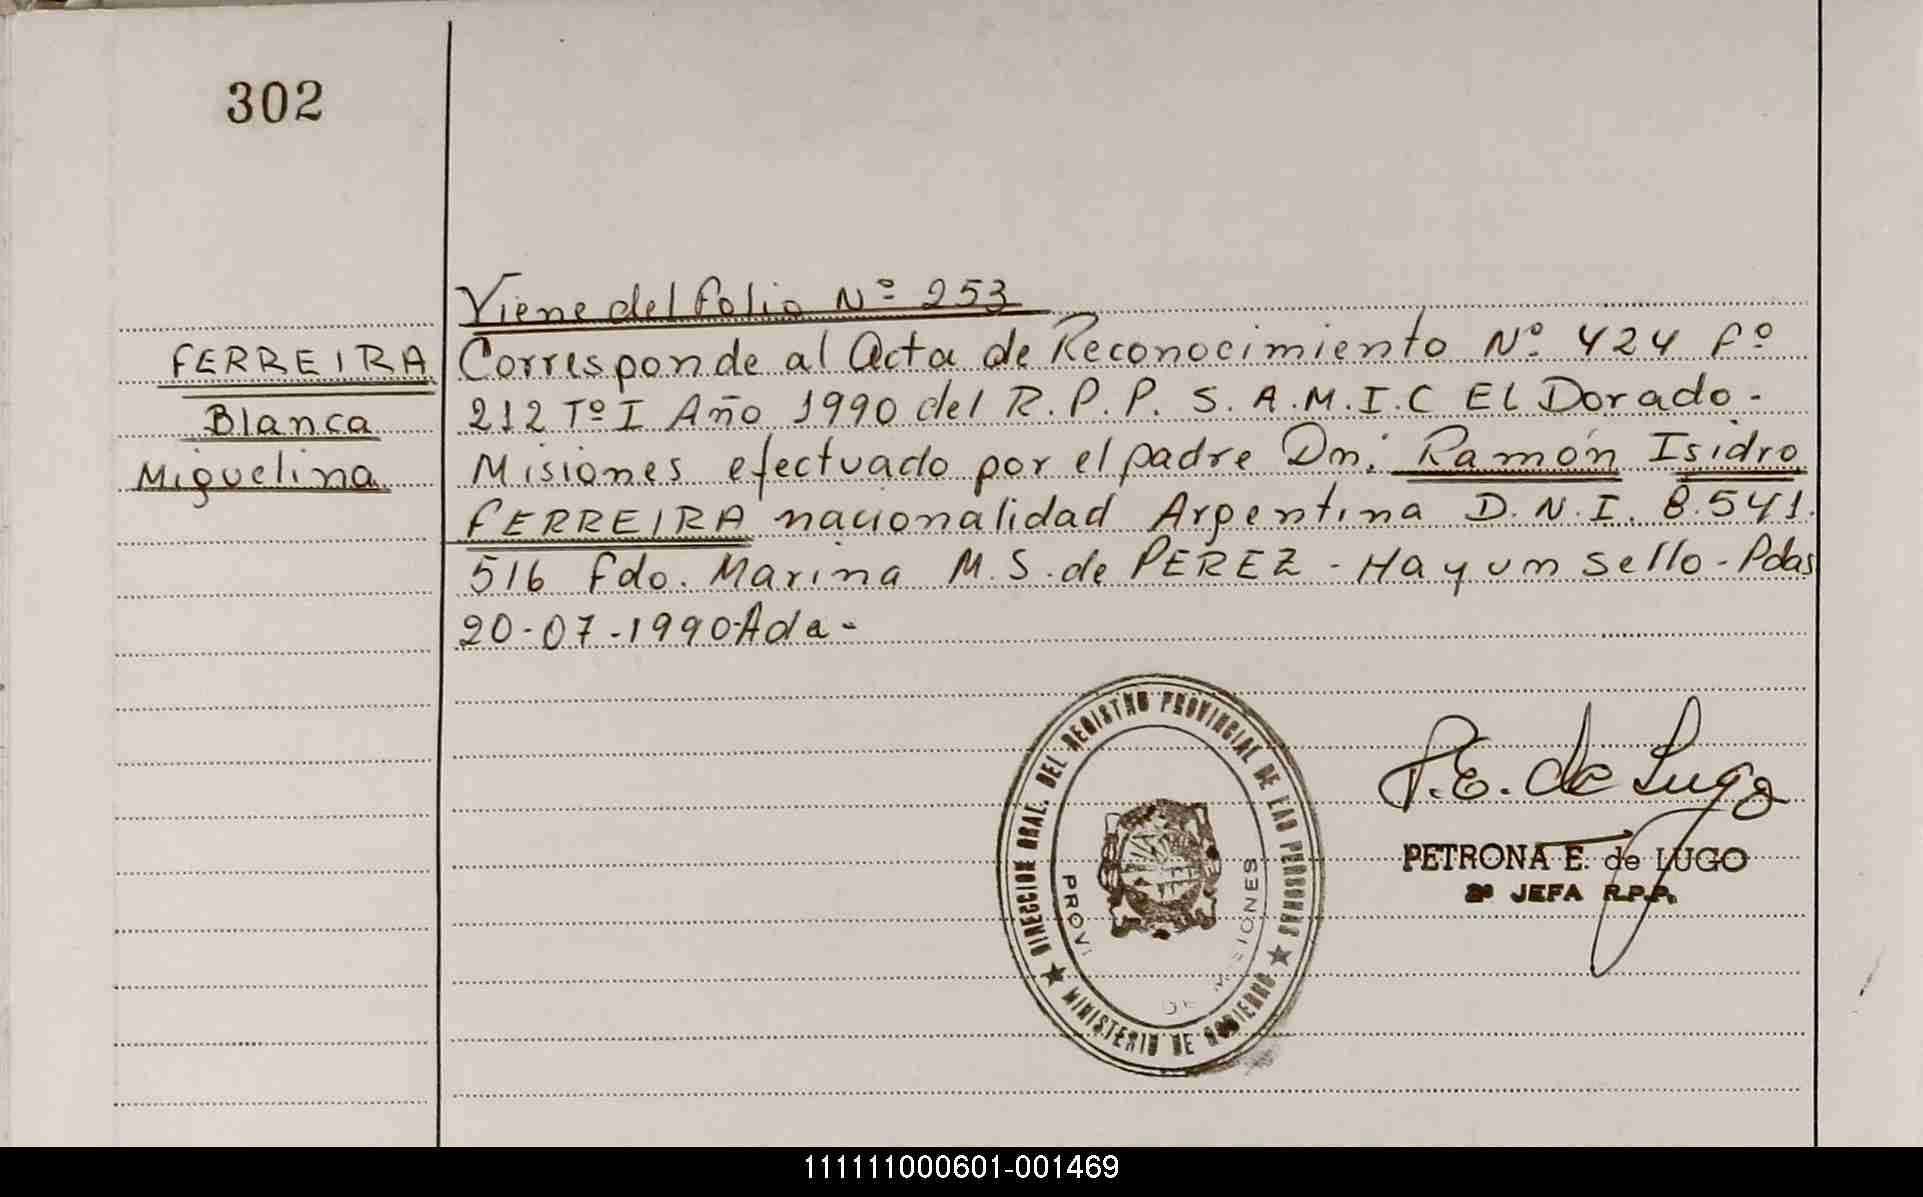 302
Viene del folio Nº 253
FERREIRA
Blanca
Miguelina
Corresponde al Acta de Reconocimiento Nº 424 Fº
212 Tº I Año 1990 del R.P.P. S.A.M.I.C El Dorado.-
Misiones efectuado por el padre Dn: Ramón Isidro
FERREIRA nacionalidad Argentina D.N.I. 8.541.
516 Fdo. Marina M.S. de PEREZ - Hay un sello - Pdas
20-07-1990-Ada-
DIRECCION GRAL. DEL REGISTRO PROVINCIAL DE LAS PERSONAS
MINISTERIO DE GOBIERNO
PROVI
DE MISIONES
P.E. de Lugo
PETRONA E. de LUGO
2º JEFA R.P.P.
111111000601-001469